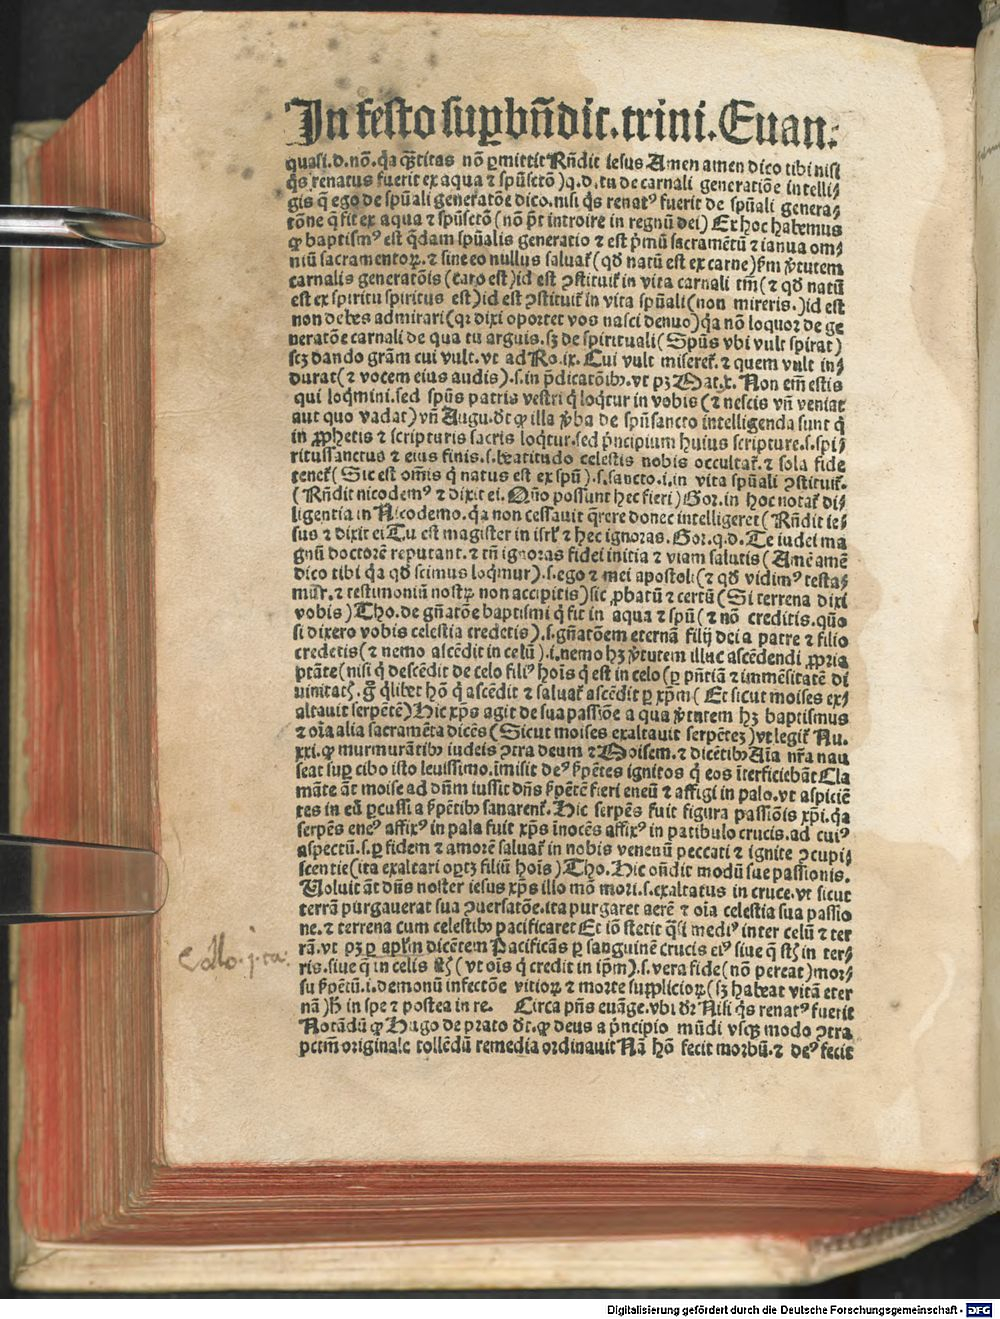 In festo sup̲bn̄dit. trini. Euan.
quasi. d. nō. q̇a q̄titas nō p̲mittit Rn̄dit iesus Amen amen dico tibi nisi
q̇s renatus fuerit ex aqua ⁊ spūsctō) q. d. tu de carnali generatiōe intelli⸗
gis q̇ ego de spūali generatōe dico. nisi q̇s renatꝰ fuerit de spūali genera⸗
tōne q̇ fit ex aqua ⁊ spūsctō (nō p̄t introire in regnū dei) Ex hoc habemus
ꝙ baptismꝰ est q̄dam spūalis generatio ⁊ est p̄mū sacramētū ⁊ ianua om⸗
niū sacramentoꝝ. ⁊ sine eo nullus saluat̄ (qd̄ natū est ex carne) ẜm v̇tutem
carnalis generatōis (caro est) id est ꝯstituit̄ in vita carnali tm̄ (⁊ qd̄ natū
est ex spiritu spiritus est) id est ꝯstituit̄ in vita spūali (non mireris.) id est
non debes admirari (qꝛ dixi oportet vos nasci denuo) q̇a nō loquoꝛ de ge
neratōe carnali de qua tu arguis. sꝫ de spirituali (Spūs vbi vult spirat)
scꝫ dando grām cui vult. vt ad Ro. ix. Cui vult miseret̄. ⁊ quem vult in⸗
durat (⁊ vocem eius audis). s. in p̄dicatōibꝰ. vt pꝫ Mat. x. Non em̄ estis
qui loq̇mini. sed spūs patris vestri q̇ loq̇tur in vobis (⁊ nescis vn̄ veniat
aut quo vadat) vn̄ Augu. dt̄ ꝙ illa v̇ba de spūsancto intelligenda sunt q̇
in ꝓphetis ⁊ scripturis sacris loq̇tur. sed p̄ncipium huius scripture. s. spi⸗
ritussanctus ⁊ eius finis. s. beatitudo celestis nobis occultat̄. ⁊ sola fide
tenet̄ (Sic est om̄is q̇ natus est ex spū). s. sancto. i. in vita spūali ꝯstituit̄.
(Rn̄dit nicodemꝰ ⁊ dixit ei. Quō possunt hec fieri) Gor. in hoc notat̄ di⸗
ligentia in Nicodemo. q̇a non cessauit q̄rere donec intelligeret (Rn̄dit ie⸗
sus ⁊ dixit ei Tu est magister in isrl̄ ⁊ hec ignoras. Gor. q. d. Te iudei ma
gnū doctorē reputant. ⁊ tn̄ ignoras fidei initia ⁊ viam salutis (Amē amē
dico tibi q̇a qd̄ scimus loq̇mur). s. ego ⁊ mei apostoli (⁊ qd̄ vidimꝰ testa⸗
mur. ⁊ testimoniū nostꝝ non accipitis) sic ꝓbatū ⁊ certū (Si terrena dixi
vobis) Tho. de gn̄atōe baptismi q̇ fit in aqua ⁊ spū (⁊ nō creditis. quō
si dixero vobis celestia credetis). s. gn̄atōem eternā filij dei a patre ⁊ filio
credetis (⁊ nemo ascēdit in celū). i. nemo hꝫ v̇tutem illuc ascēdendi ꝓpria
ptāte (nisi q̇ descēdit de celo filiꝰ hoīs q̇ est in celo (p̲ pn̄tiā ⁊ immēsitatē di
uinitatꝭ. g̊ q̇libet hō q̇ ascēdit ⁊ saluat̄ ascēdit p̲ xp̄m (Et sicut moises ex⸗
altauit serpētē) Hic xp̄s agit de sua passiōe a qua v̇tutem hꝫ baptismus
⁊ oīa alia sacramēta dicēs (Sicut moises exaltauit serpētē) vt legit̄ Nu.
xxi. ꝙ murmurātibꝰ iudeis ꝯtra deum ⁊ Moisem. ⁊ dicētibꝰ Aīa nr̄a nau
seat sup̲ cibo isto leuissimo. īmisit deꝰ ẜpētes ignitos q̇ eos īterficiebāt Cla
māte āt moise ad dn̄m iussit dn̄s ẜpētē fieri eneū ⁊ affigi in palo. vt aspiciē
tes in eū p̲cussi a ẜpētibꝰ sanarent̄. Hic serpēs fuit figura passiōis xp̄i. q̇a
serpēs eneꝰ affixꝰ in palo fuit xp̄s īnocēs affixꝰ in patibulo crucis. ad cuiꝰ
aspectū. s. p̲ fidem ⁊ amorē saluat̄ in nobis venenū peccati ⁊ ignite ꝯcupi⸗
scentie (ita exaltari opꝫ filiū hoīs) Tho. Hic on̄dit modū sue passionis.
Voluit āt dn̄s noster iesus xp̄s illo mō mori. s. exaltatus in cruce. vt sicut
terrā purgauerat sua ꝯuersatōe. ita purgaret aerē ⁊ oīa celestia sua passio
ne. ⁊ terrena cum celestibꝰ pacificaret Et iō stetit q̇si mediꝰ inter celū ⁊ ter
rā. vt pꝫ p̲ apl̄m dicētem Pacificās p̲ sanguinē crucis eiꝰ siue q̇ stꝭ in ter⸗
ris. siue q̇ in celis stꝭ (vt oīs q̇ credit in ip̄m). s. vera fide (nō pereat) moꝛ⸗
su ẜpētū. i. demonū infectōe vitioꝝ ⁊ morte supplicioꝝ (sꝫ habeat vitā eter
nā) h̄ in spe ⁊ postea in re. Circa pn̄s euāge. vbi dr̄ Nisi q̇s renatꝰ fuerit
Notādū ꝙ Hugo de prato dt̄. ꝙ deus a p̄ncipio mūdi vsqꝫ modo ꝯtra
pctm̄ originale tollēdū remedia ordinauit Nā hō fecit morbū. ⁊ deꝰ fecit
Digitalisierung gefördert durch die Deutsche Forschungsgemeinschaft - DFG